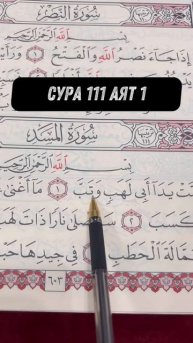 سُورَةُ النَّصْرِ
بِسْمِ اللَّهِ الرَّحْمَٰنِ الرَّحِيمِ
إِذَا جَاءَ نَصْرُ اللَّهِ وَالْفَتْحُ ١ وَرَأَيْتَ
СУРА 111 АЯТ 1
سُورَةُ الْمَسَدِ
بِسْمِ اللَّهِ الرَّحْمَٰنِ الرَّحِيمِ
تْ يَدَا أَبِي لَهَبٍ وَتَبَّ ١ مَا أَغْنَىٰ
كَسَبَ ٢ سَيَصْلَىٰ نَارًا ذَاتَ
حَمَّالَةَ الْحَطَبِ ٤ فِي جِيدِهَا
٦٠٣